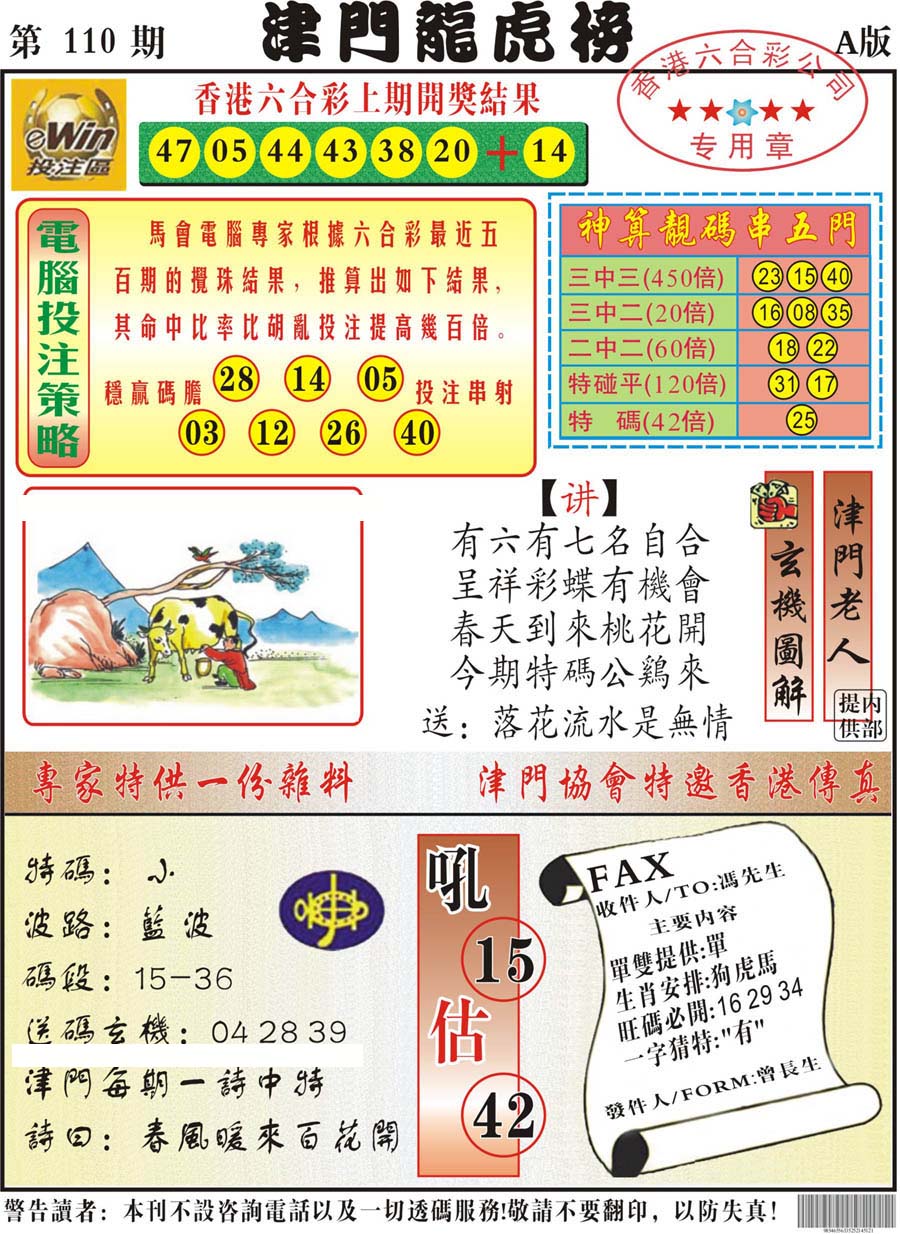 第 110 期
津門龍虎榜
A版
eWin
投注區
香港六合彩上期開獎結果
47 05 44 43 38 20 + 14
香港六合彩公司
★★★★
专用章
電腦投注策略
馬會電腦專家根據六合彩最近五
百期的攪珠結果，推算出如下結果，
其命中比率比胡亂投注提高幾百倍。
穩赢碼膽 28 14 05 投注串射
03 12 26 40
神算靚碼串五門
三中三(450倍) 23 15 40
三中二(20倍) 16 08 35
二中二(60倍) 18 22
特碰平(120倍) 31 17
特 碼(42倍) 25
【讲】
有六有七名自合
呈祥彩蝶有機會
春天到來桃花開
今期特碼公鷄來
送：落花流水是無情
玄機圖解
津門老人
内部
提供
專家特供一份雜料
津門協會特邀香港傳真
特碼：小
波路：藍波
碼段：15-36
送碼玄機：04 28 39
津門每期一詩中特
詩曰：春風暖來百花開
吼
15
估
42
FAX
收件人/TO:馮先生
主要内容
單雙提供:單
生肖安排:狗虎馬
旺碼必開:16 29 34
一字猜特:"有"
發件人/FORM:曾長生
警告讀者：本刊不設咨詢電話以及一切透碼服務!敬請不要翻印，以防失真!